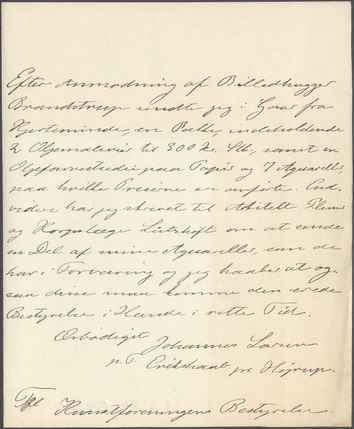 Efter Anmodning af Billedhugger
Brandstrup sendte jeg i Gaar fra
Kjerteminde, en Pakke, indeholdende
2 Oljemalerier til 300 Kr. Stk, samt en
Oljefarvestudie paa Papir og 7 Aquareller,
paa hvilke Priserne er anførte. End-
videre har jeg skrevet til Arkitekt Klein
og Korpslæge om at sende
en Del af mine Aquareller, som de
har i Forvaring og jeg haaber at og-
saa disse maa komme den ærede
Bestyrelse i Hænde i rette Tid.
Ærbødigst
Johannes Larsen
p.T. Erikshaab pr Højrup.
Til Kunstforeningens Bestyrelse.